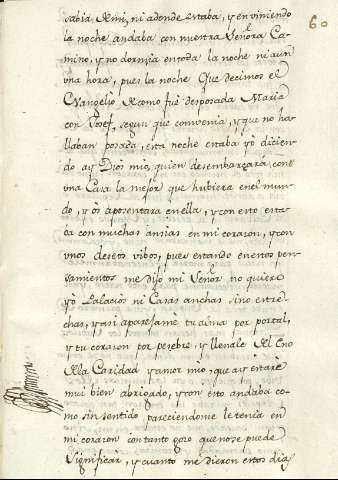 60
sabia de mi, ni adonde estaba, y en viniendo
la noche andaba con nuestra Señora Ca-
mino, y no dormia en toda la noche ni aun
una hora, pues la noche Que decimos el
Evangelio como fue desposada Maria
con Josef, segun que convenia, y que no ha-
llaban posada, esta noche estaba yo dicien-
do ay Dios mio, quien desembarazará con
una Casa la mejor que hubiera en el mun-
do, y os aposentara en ella, y con esto esta-
ba con muchas ansias en mi corazon, y con
unos deseos vibos, pues estando en estos pen-
samientos me dijo mi Señor no quiero
yo Palacios ni Casas anchas sino estre-
chas, y asi aparejame tu alma por portal,
y tu corazon por pesebre, y llenale del eno
de la Caridad y amor mio, que ay estare
mui bien abrigado, y con esto andaba co-
mo sin sentido pareciendome le tenia en
mi corazon con tanto gozo que no se puede
significar, y cuanto me dieron estos dias